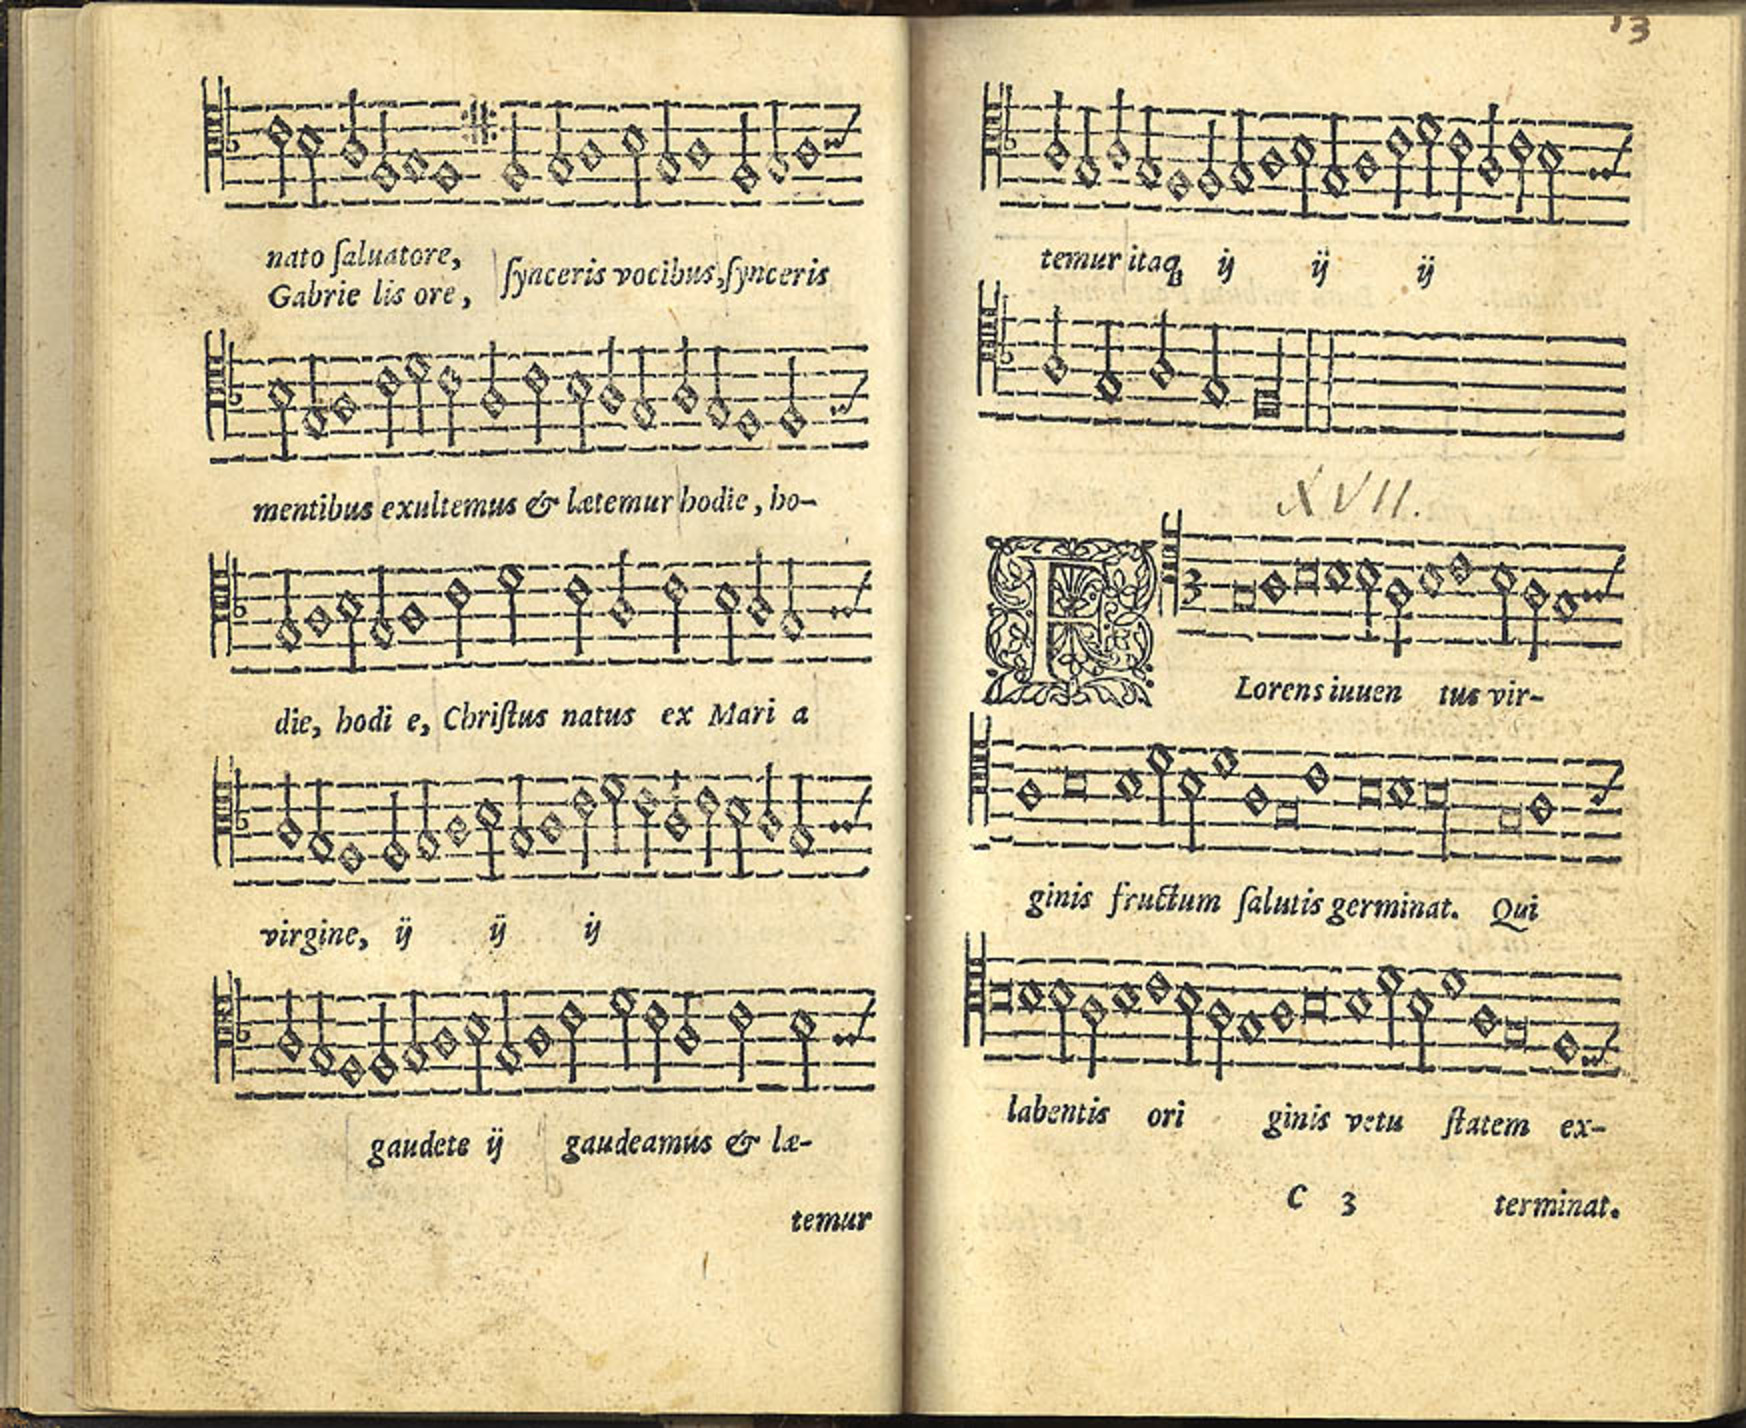 nato ſaluatore,
Gabrie lis ore,
ſynceris vocibus, ſynceris
mentibus exultemus & lætemur hodie, ho-
die, hodi e, Chriſtus natus ex Mari a
virgine, ij ij ij
gaudete ij gaudeamus & læ-
temur
13
temur itaqꝫ ij ij ij
XVII.
3
FLorens iuuen tus vir-
ginis fructum ſalutis germinat. Qui
labentis ori ginis vetu ſtatem ex-
C 3 terminat.